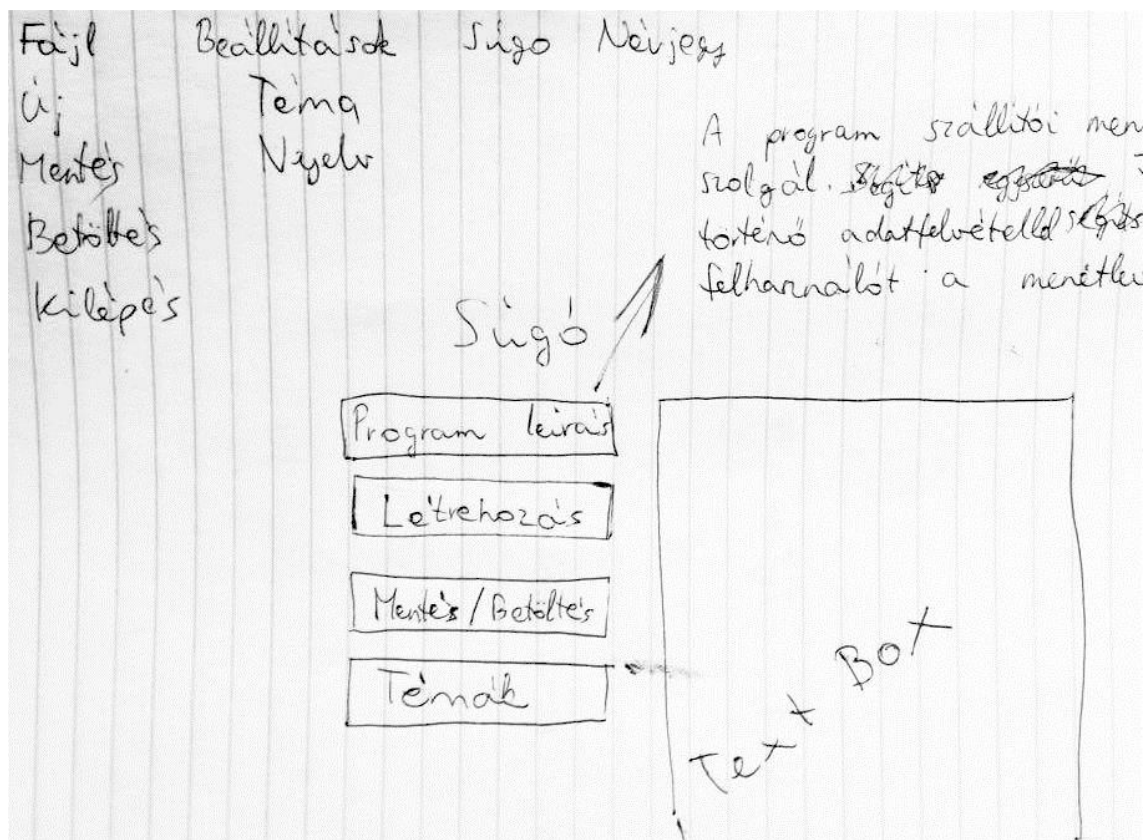 Fájl Beállítások Súgó Névjegy
Új Téma
Mentés Nyelv
Betöltés
Kilépés
A program szállítói men
szolgál.
történő adatfelvétellel segíts
felhasználót a menetlev
Súgó
Program leírás
Létrehozás
Mentés/Betöltés
Témák
Text Box